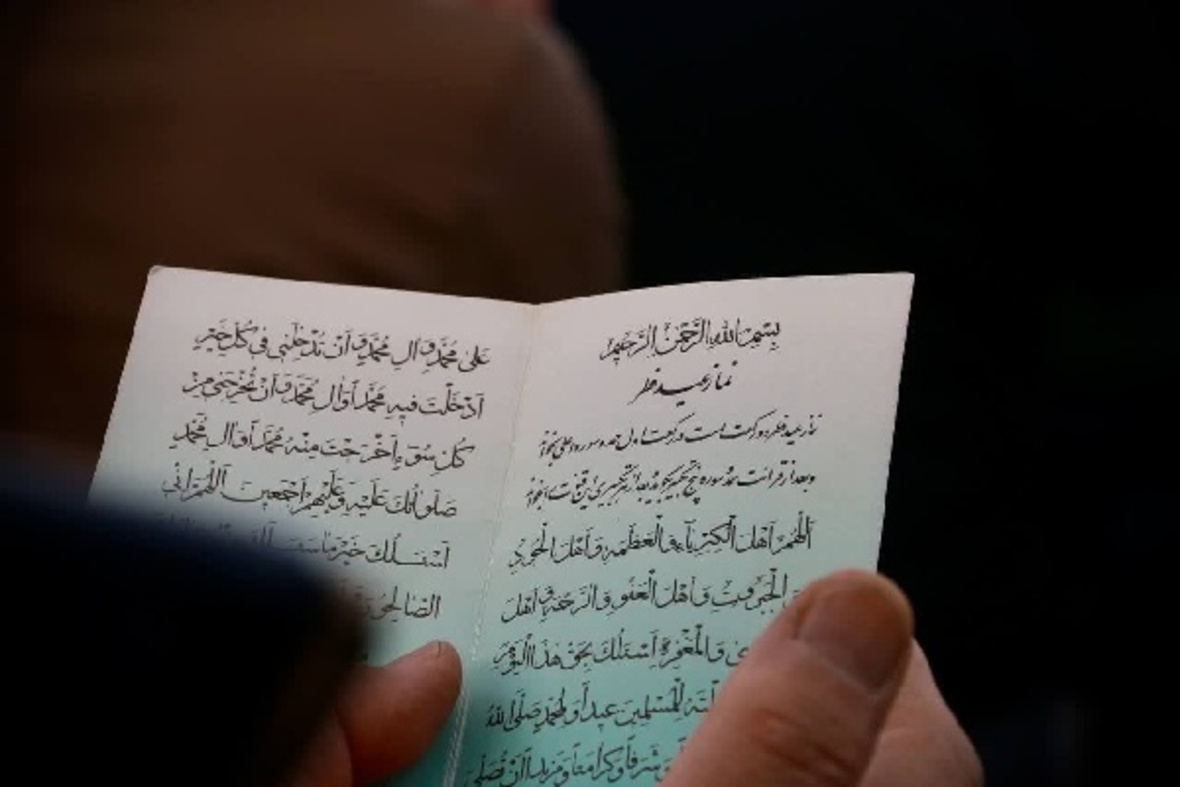 بِسْمِ اللهِ الرَّحْمٰنِ الرَّحِيمِ
نماز عید فطر
نماز عید فطر دو رکعت است در رکعت اول حمد و سوره اعلی بخواند
و بعد از قرائت حمد و سوره پنج تکبیر بگوید بعد از هر تکبیری این قنوت را بخواند
اَللّٰهُمَّ اَهْلَ الْكِبْرِيَآءِ وَ الْعَظَمَةِ وَ اَهْلَ الْجُودِ
الْجَبَرُوتِ وَ اَهْلَ الْعَفْوِ وَ الرَّحْمَةِ وَ اَهْلَ
وَ الْمَغْفِرَةِ اَسْئَلُكَ بِحَقِّ هٰذَا الْيَوْمِ
لِلْمُسْلِمِينَ عِيداً وَ لِمُحَمَّدٍ صَلَّى اللهُ
وَ شَرَفاً وَ كَرامَةً وَ مَزِيداً اَنْ تُصَلِّىَ
عَلىٰ مُحَمَّدٍ وَ آلِ مُحَمَّدٍ وَ اَنْ تُدْخِلَنِى فِى كُلِّ خَيْرٍ
اَدْخَلْتَ فِيهِ مُحَمَّداً وَ آلَ مُحَمَّدٍ وَ اَنْ تُخْرِجَنِى مِنْ
كُلِّ سُوۤءٍ اَخْرَجْتَ مِنْهُ مُحَمَّداً وَ آلَ مُحَمَّدٍ
صَلَواتُكَ عَلَيْهِ وَ عَلَيْهِمْ اَجْمَعِينَ اَللّٰهُمَّ اِنِّى
اَسْئَلُكَ خَيْرَ ما سَئَلَكَ
الصّالِحُونَ